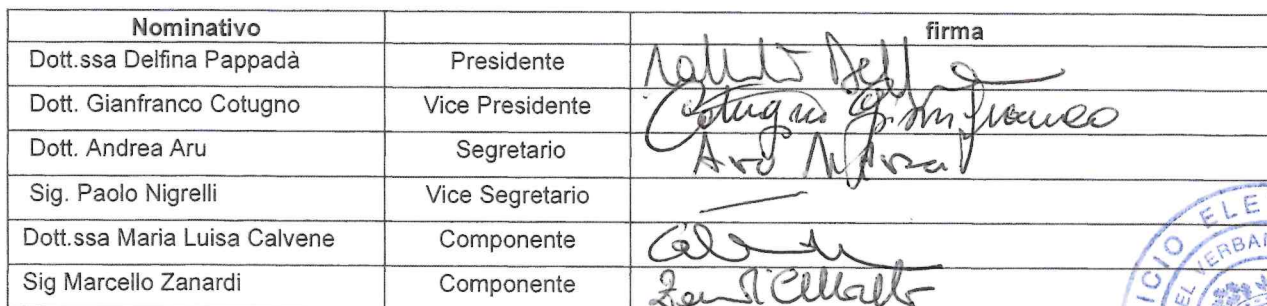 Nominativo firma
Dott.ssa Delfina Pappadà Presidente
Dott. Gianfranco Cotugno Vice Presidente Cotugno Gianfranco
Dott. Andrea Aru Segretario Aru
Sig. Paolo Nigrelli Vice Segretario —
Dott.ssa Maria Luisa Calvene Componente
Sig Marcello Zanardi Componente
ICIO ELE
EL VERBA